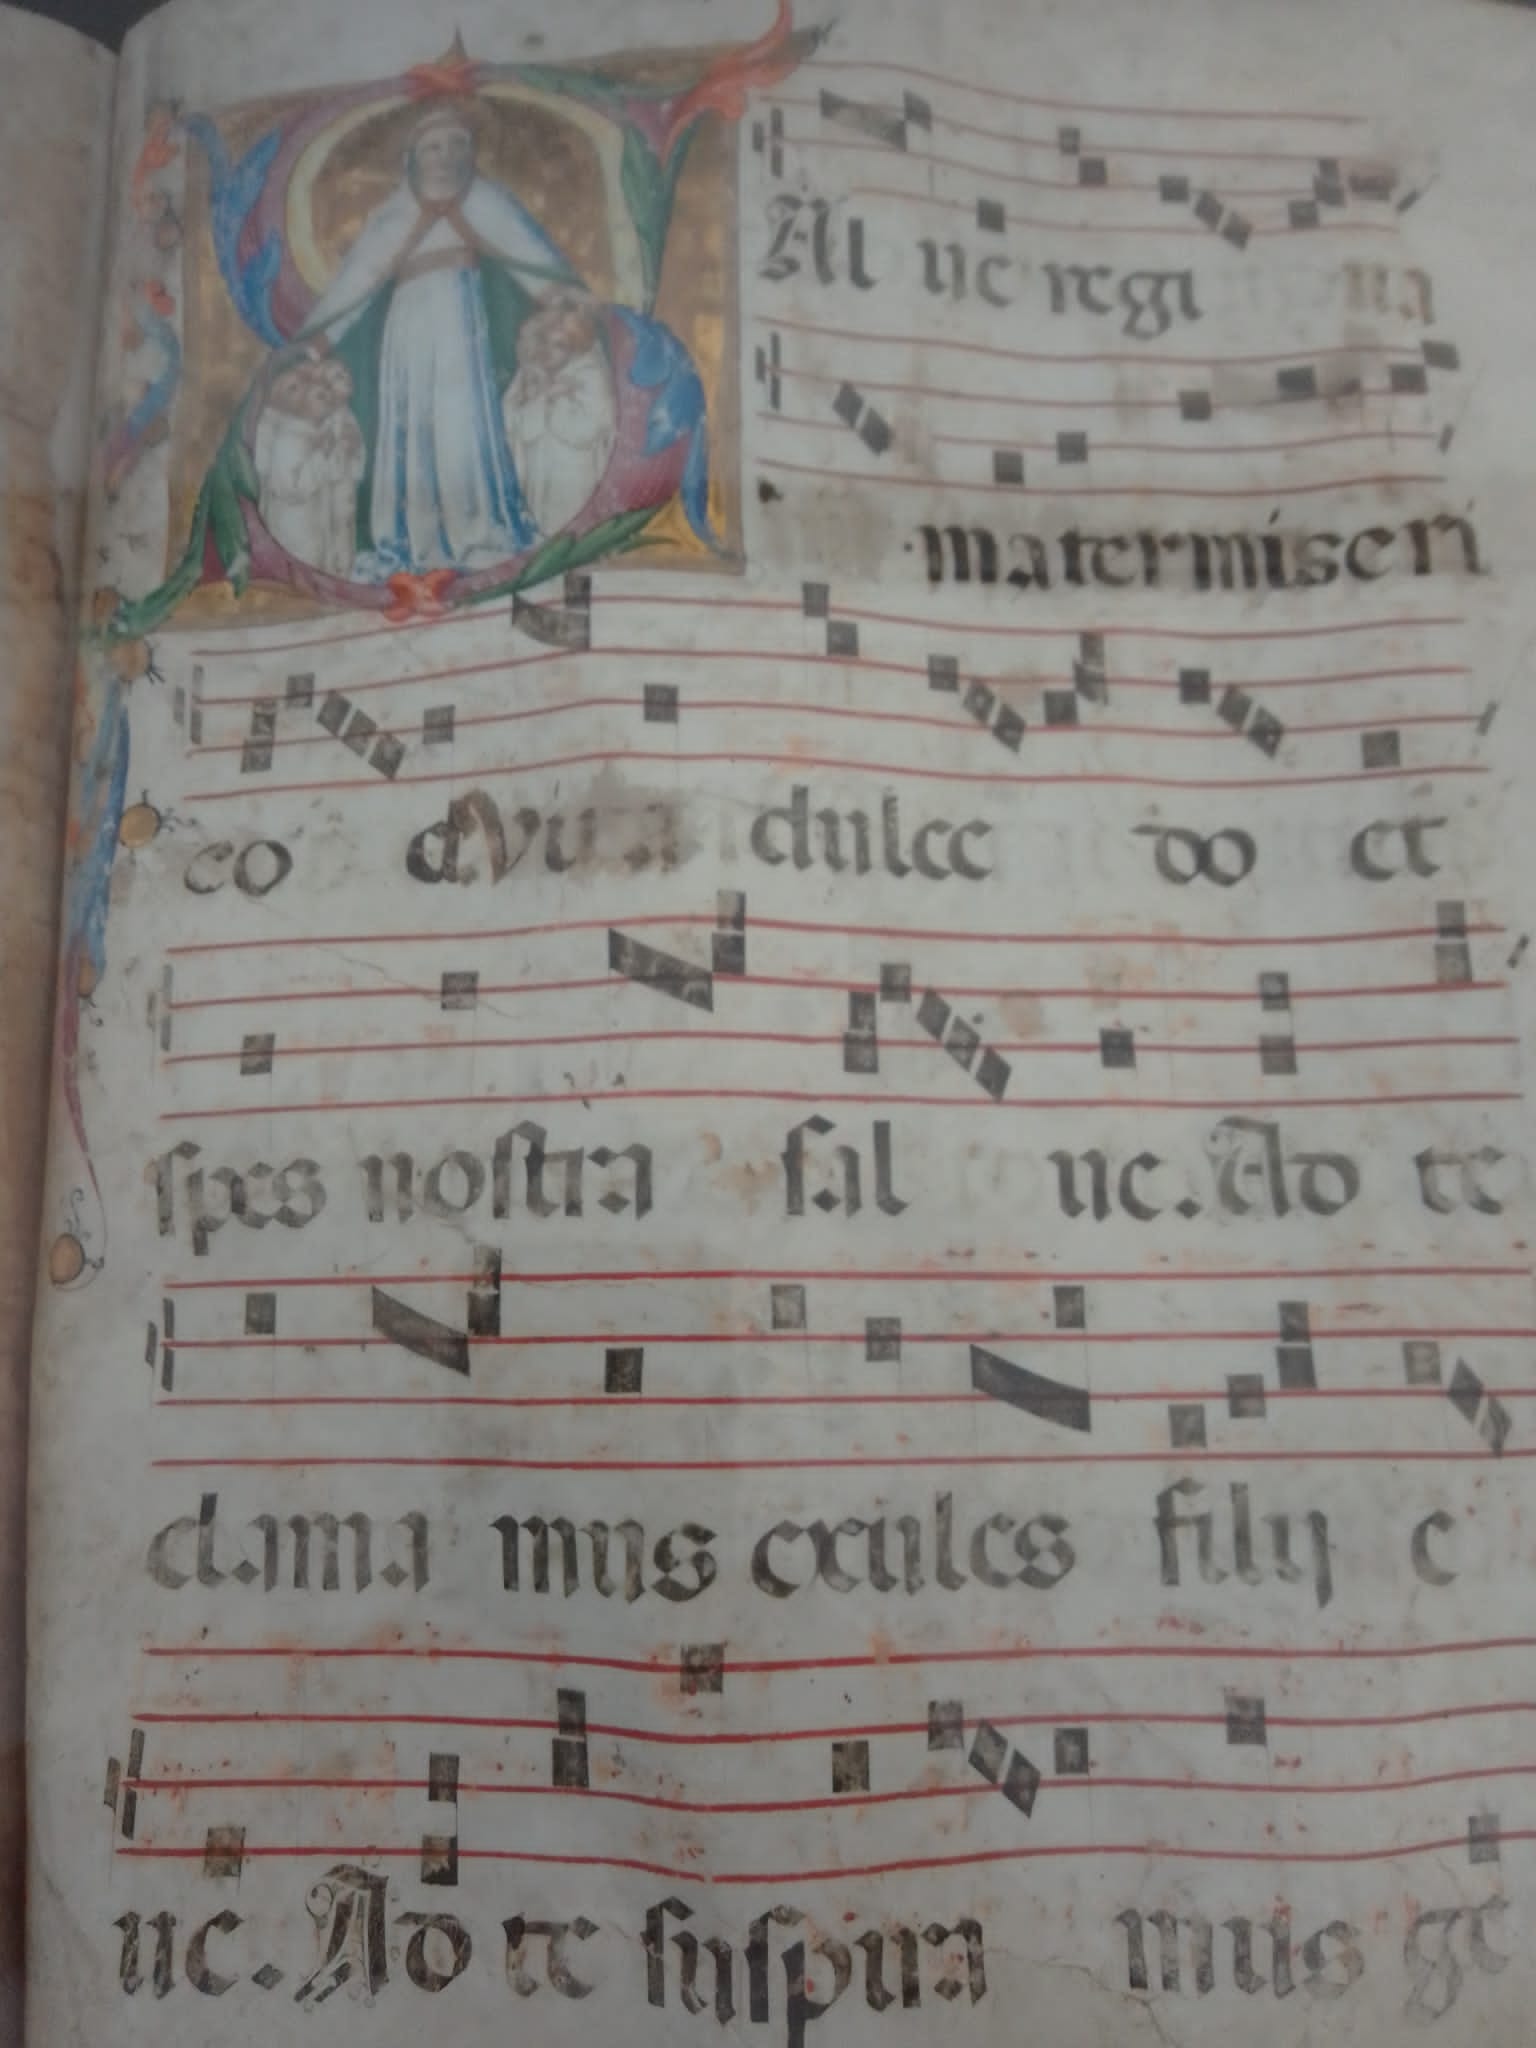 SAl ue regi na
mater miseri
co d Vita dulce do et
spes nostra sal ue. Ad te
clama mus exules filij e
ue. Ad te suspira mus ge